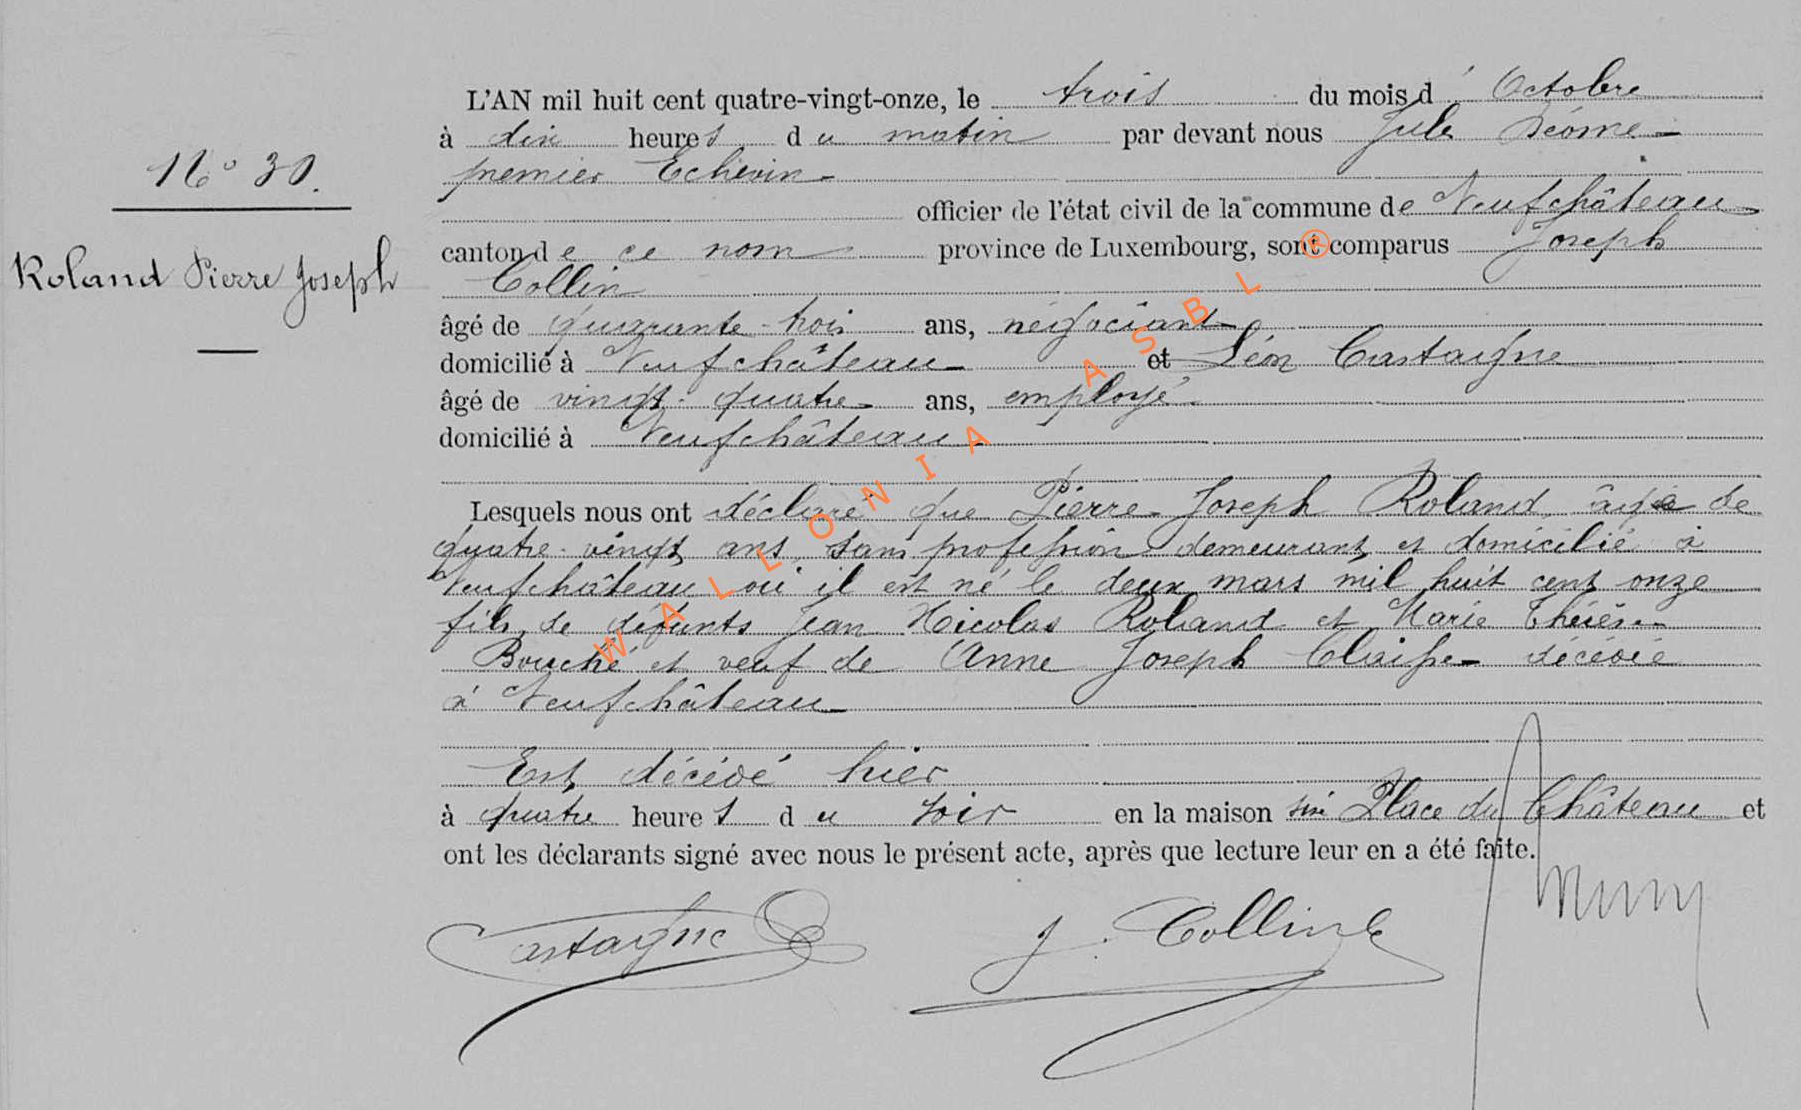 L'AN mil huit cent quatre-vingt-onze, le trois du mois d'Octobre
à dix heures du matin par devant nous Jules
premier Echevin
officier de l'état civil de la commune de Neufchâteau
N° 30.
canton de ce nom province de Luxembourg, sont comparus Joseph
Roland Pierre Joseph
Collin
âgé de quarante-trois ans, négociant
domicilié à Neufchâteau et Léon Castaigne
âgé de vingt-quatre ans, employé
domicilié à Neufchâteau
Lesquels nous ont déclaré que Pierre Joseph Roland, âgé de
quatre-vingt ans, sans profession demeurant et domicilié à
Neufchâteau où il est né le deux mars mil huit cent onze
fils de défunts Jean Nicolas Roland et Marie Thérèse
Bouché et veuf de Anne Joseph décédée
à Neufchâteau
Est décédé hier
à quatre heures du soir en la maison sise Place du Château et
ont les déclarants signé avec nous le présent acte, après que lecture leur en a été faite.
Castaigne J. Collin
WALLONIA ASBL ®